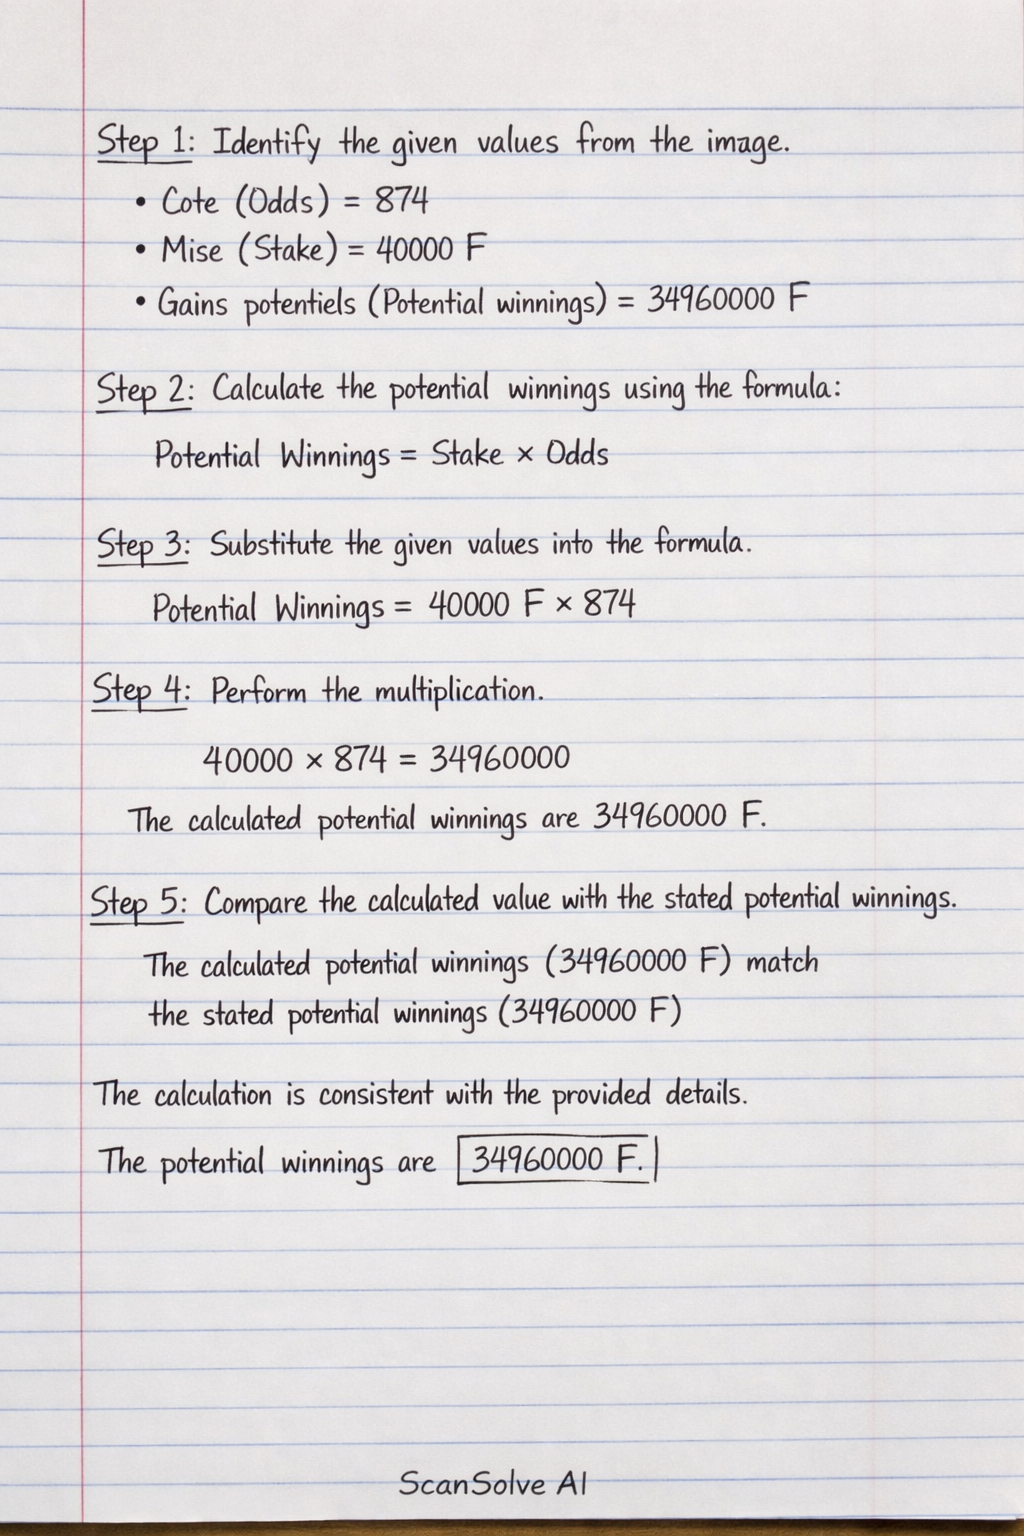 Step 1: Identify the given values from the image.
• Cote (Odds) = 874
• Mise (Stake) = 40000 F
• Gains potentiels (Potential winnings) = 34960000 F
Step 2: Calculate the potential winnings using the formula:
Potential Winnings = Stake × Odds
Step 3: Substitute the given values into the formula.
Potential Winnings = 40000 F × 874
Step 4: Perform the multiplication.
40000 × 874 = 34960000
The calculated potential winnings are 34960000 F.
Step 5: Compare the calculated value with the stated potential winnings.
The calculated potential winnings (34960000 F) match
the stated potential winnings (34960000 F)
The calculation is consistent with the provided details.
The potential winnings are 34960000 F.
ScanSolve AI